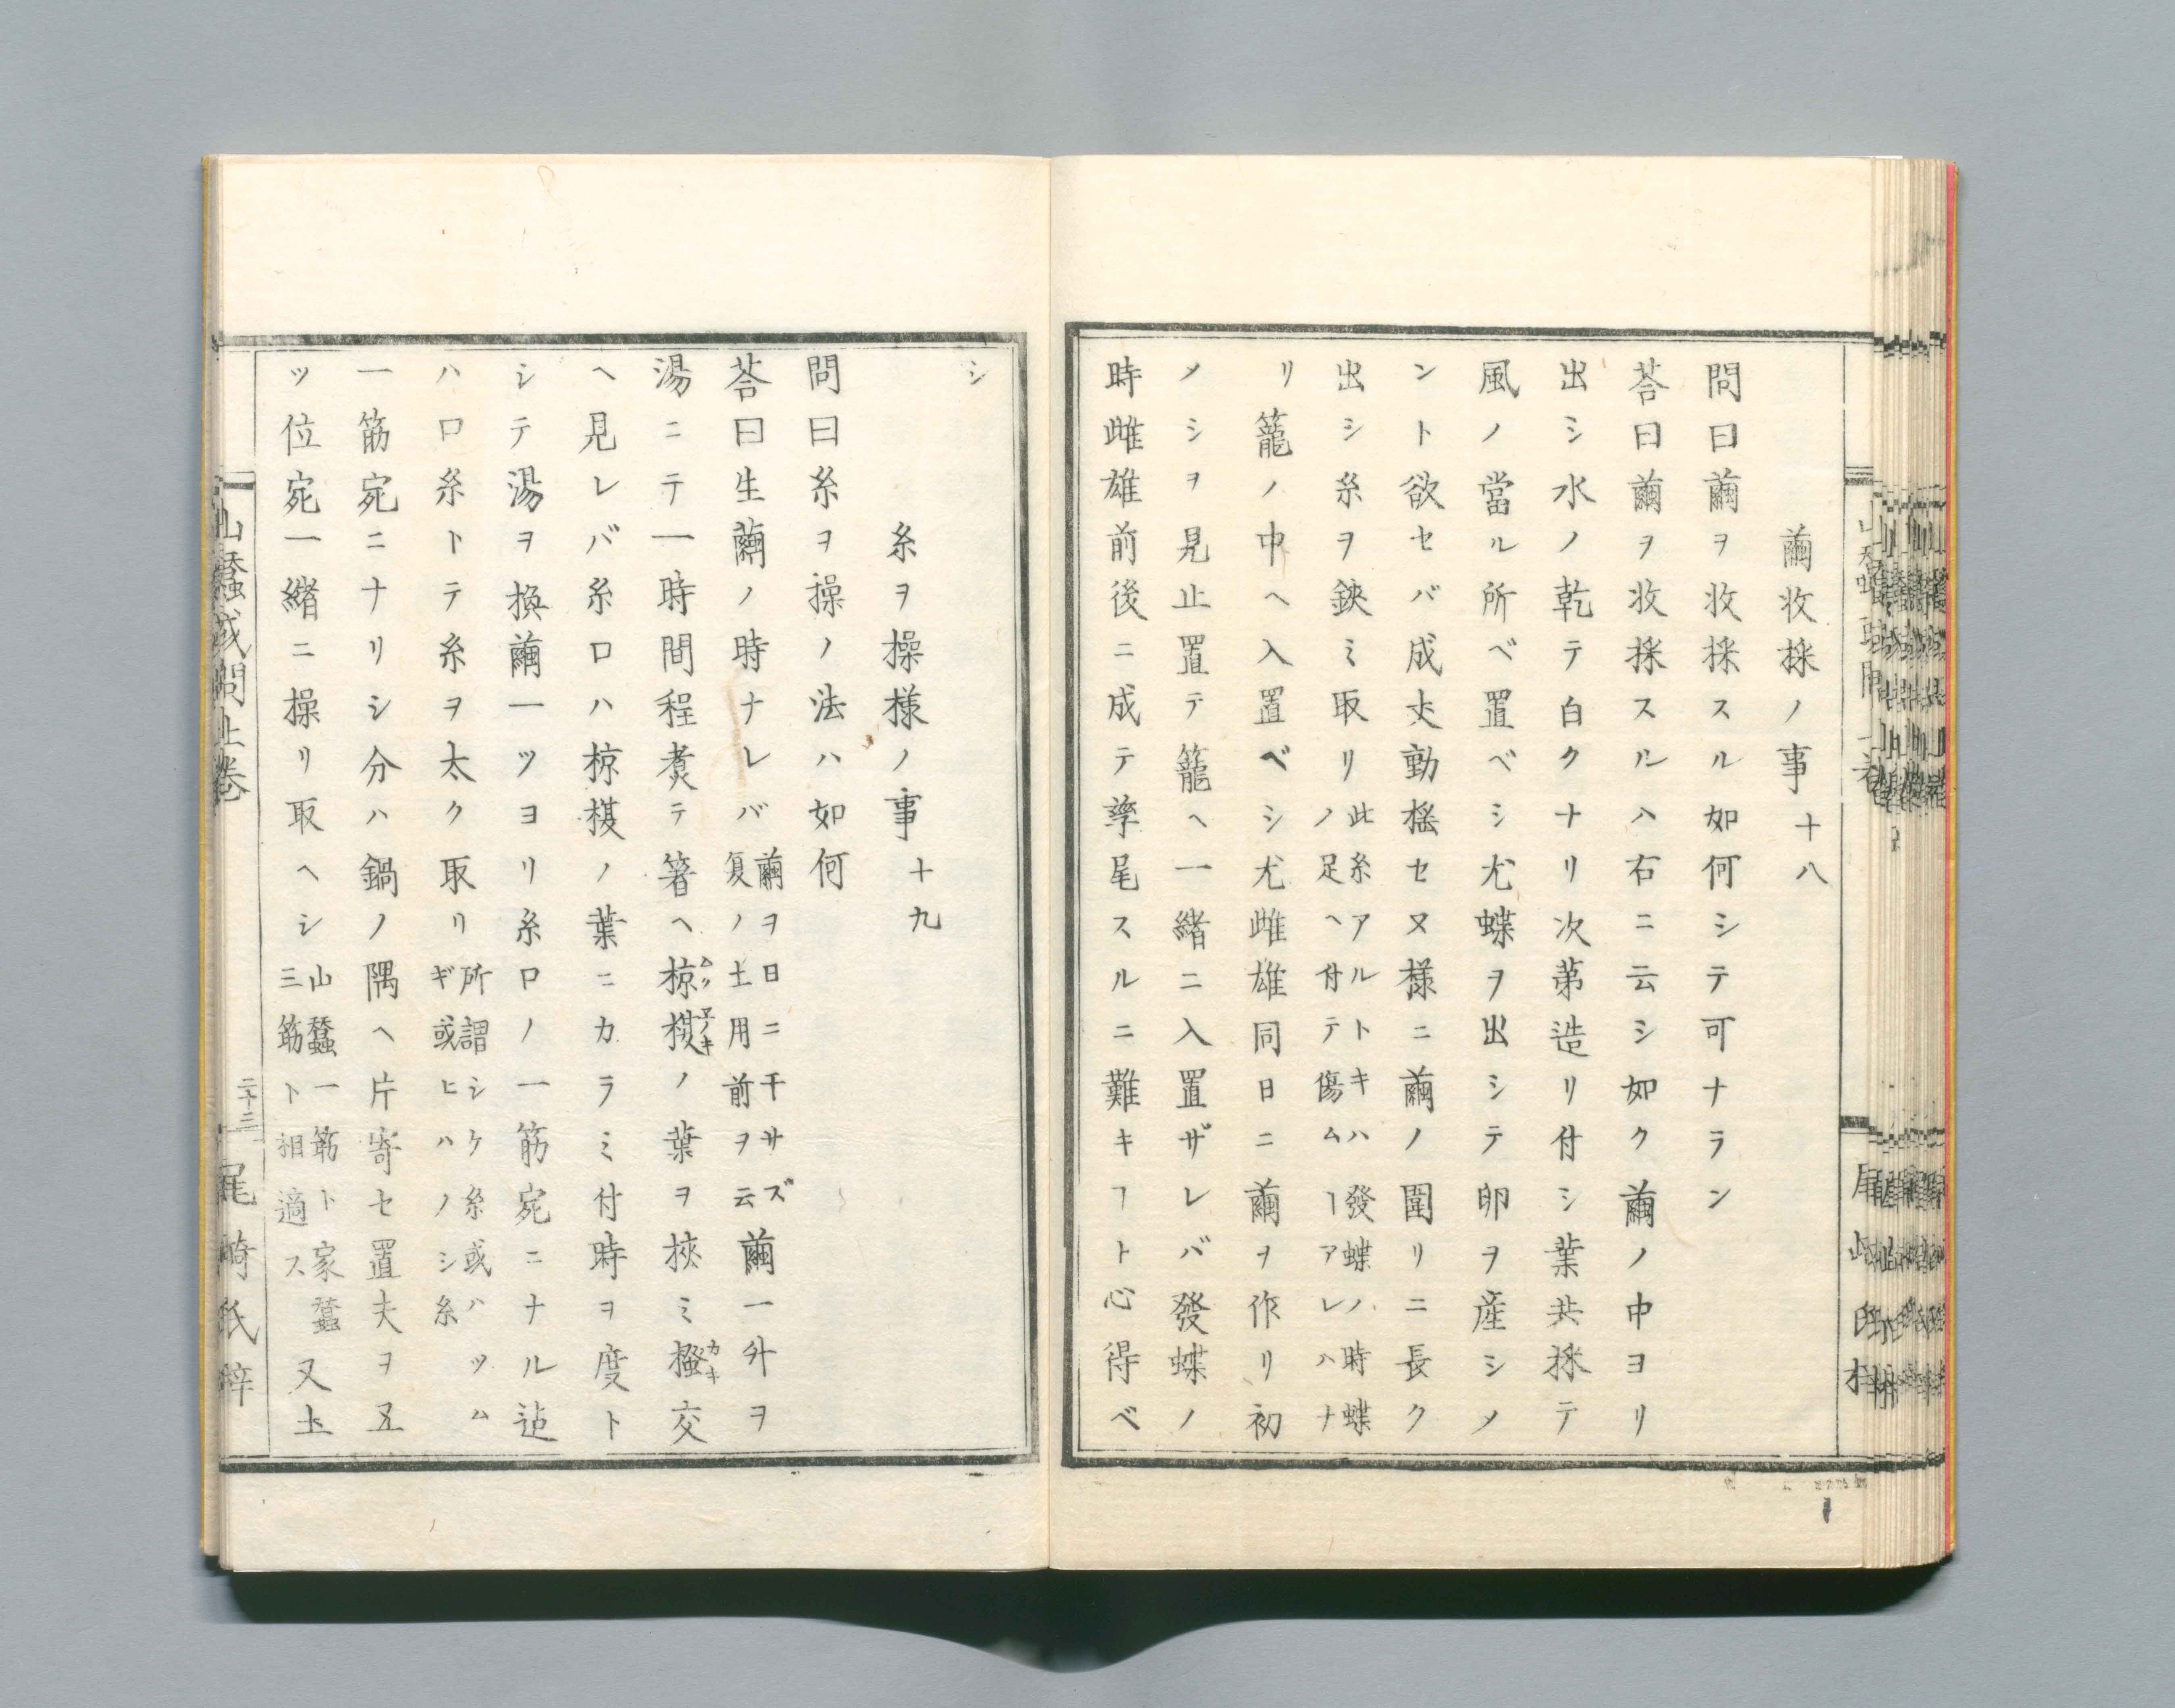 繭收採ノ事 十八
問曰繭ヲ收採スル如何シテ可ナラン
荅曰繭ヲ收採スルハ右ニ云シ如ク繭ノ中ヨリ
出シ水ノ乾テ白クナリ次第造リ付シ葉共採テ
風ノ當ル所ベ置ベシ尤蝶ヲ出シテ卵ヲ産シメ
ント欲セバ成丈動揺セヌ様ニ繭ノ圍リニ長ク
出シ糸ヲ鋏ミ取リ此糸アルトキハ發蝶ノ時蝶
ノ足ヘ付テ傷ムヿアレハナ
リ籠ノ中ヘ入置ベシ尤雌雄同日ニ繭ヲ作リ初
メシヲ見止置テ籠ヘ一緒ニ入置ザレバ發蝶ノ
時雌雄前後ニ成テ孳尾スルニ難キヿト心得ベ
シ
糸ヲ操様ノ事 十九
問曰糸ヲ操ノ法ハ如何
荅曰生繭ノ時ナレバ繭ヲ日ニ干サズ
夏ノ土用前ヲ云繭一升ヲ
湯ニテ一時間程煮テ箸ヘ椋椣ノ葉ヲ挾ミ搔交
ヘ見レバ糸口ハ椋椣ノ葉ニカラミ付時ヲ度ト
シテ湯ヲ換繭一ツヨリ糸口ノ一筋宛ニナル迠
ハ口糸トテ糸ヲ太ク取リ所謂シケ糸或ハツム
ギ或ヒハノシ糸
一筋宛ニナリシ分ハ鍋ノ隅ヘ片寄セ置夫ヲ五
ツ位宛一緒ニ操リ取ヘシ山蠶一筋ト家蠶
三筋ト相適ス又上
山蠶或問上卷
二十三
尾崎氏梓